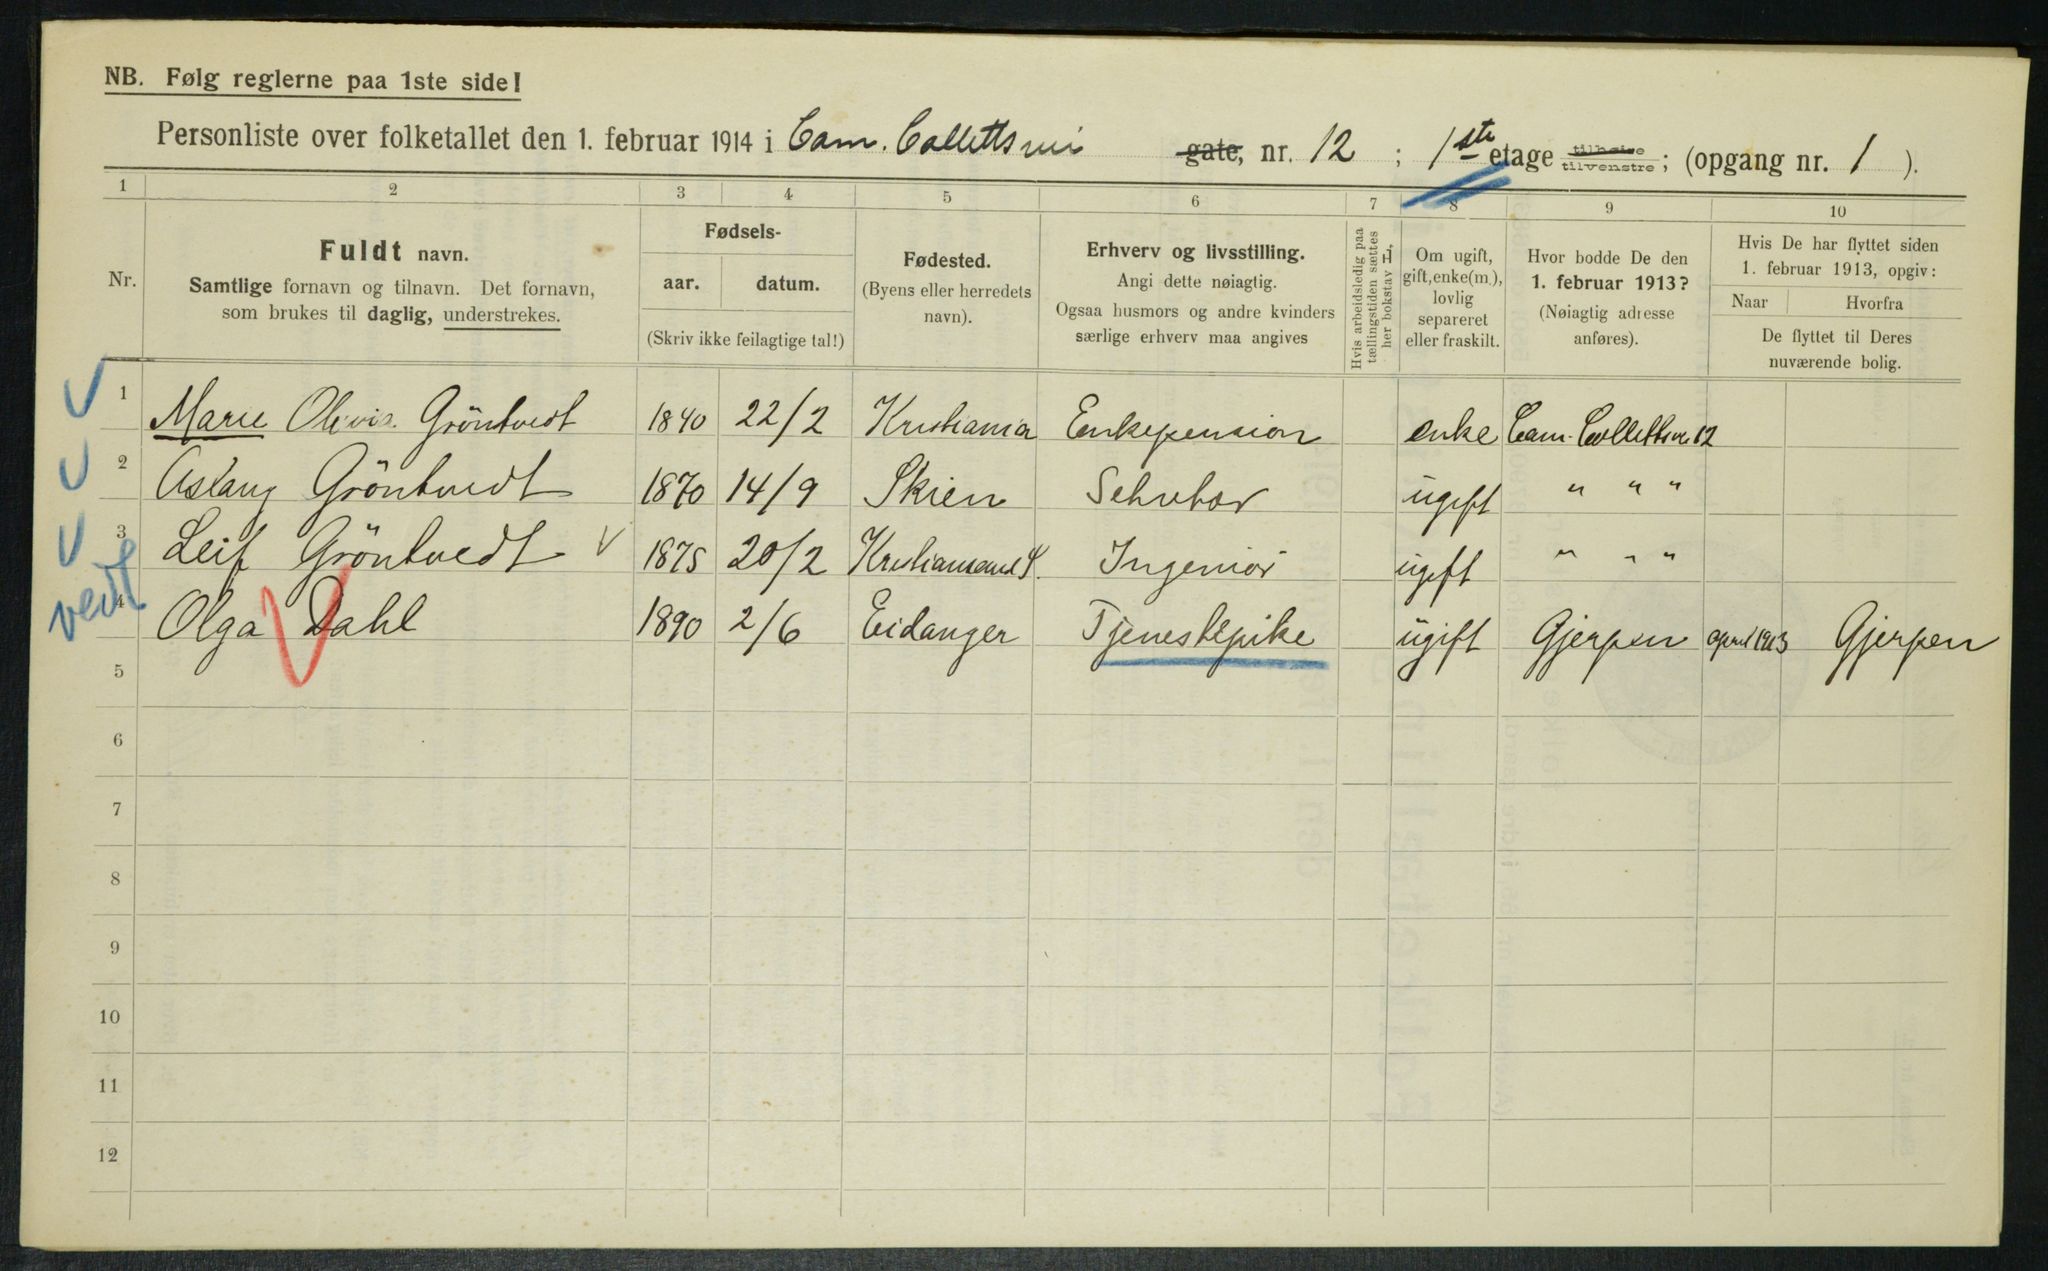 NB. Følg reglerne paa 1ste side!
Personliste over folketallet den 1. februar 1914 i Cam. Collettsvei gate, nr. 12 ; 1ste etage tilhøire tilvenstre ; (opgang nr. 1 ).
1 2 3 4 5 6 7 8 9 10
Nr.
Fuldt navn.
Samtlige fornavn og tilnavn. Det fornavn,
som brukes til daglig, understrekes.
Fødsels-
aar. datum.
(Skriv ikke feilagtige tal!)
Fødested.
(Byens eller herredets
navn).
Erhverv og livsstilling.
Angi dette nøiagtig.
Ogsaa husmors og andre kvinders
særlige erhverv maa angives
Hvis arbeidsledig paa
tællingstiden sættes
her bokstav L.
Om ugift,
gift, enke(m.),
lovlig
separeret
eller fraskilt.
Hvor bodde De den
1. februar 1913?
(Nøiagtig adresse
anføres).
Hvis De har flyttet siden
1. februar 1913, opgiv:
Naar Hvorfra
De flyttet til Deres
nuværende bolig.
1 Marie Olivia Gröntvedt 1840 22/2 Kristiania Enkepension enke Cam. Collettsv. 12
2 Aslaug Gröntvedt 1870 14/9 Skien ugift " " "
3 Leif Gröntvedt 1875 20/2 Kristiansand S. Ingeniör ugift " " "
vedt
4 Olga Dahl 1890 2/6 Eidanger Tjenestepike ugift Gjerpen april 1913 Gjerpen
5
6
7
8
9
10
11
12